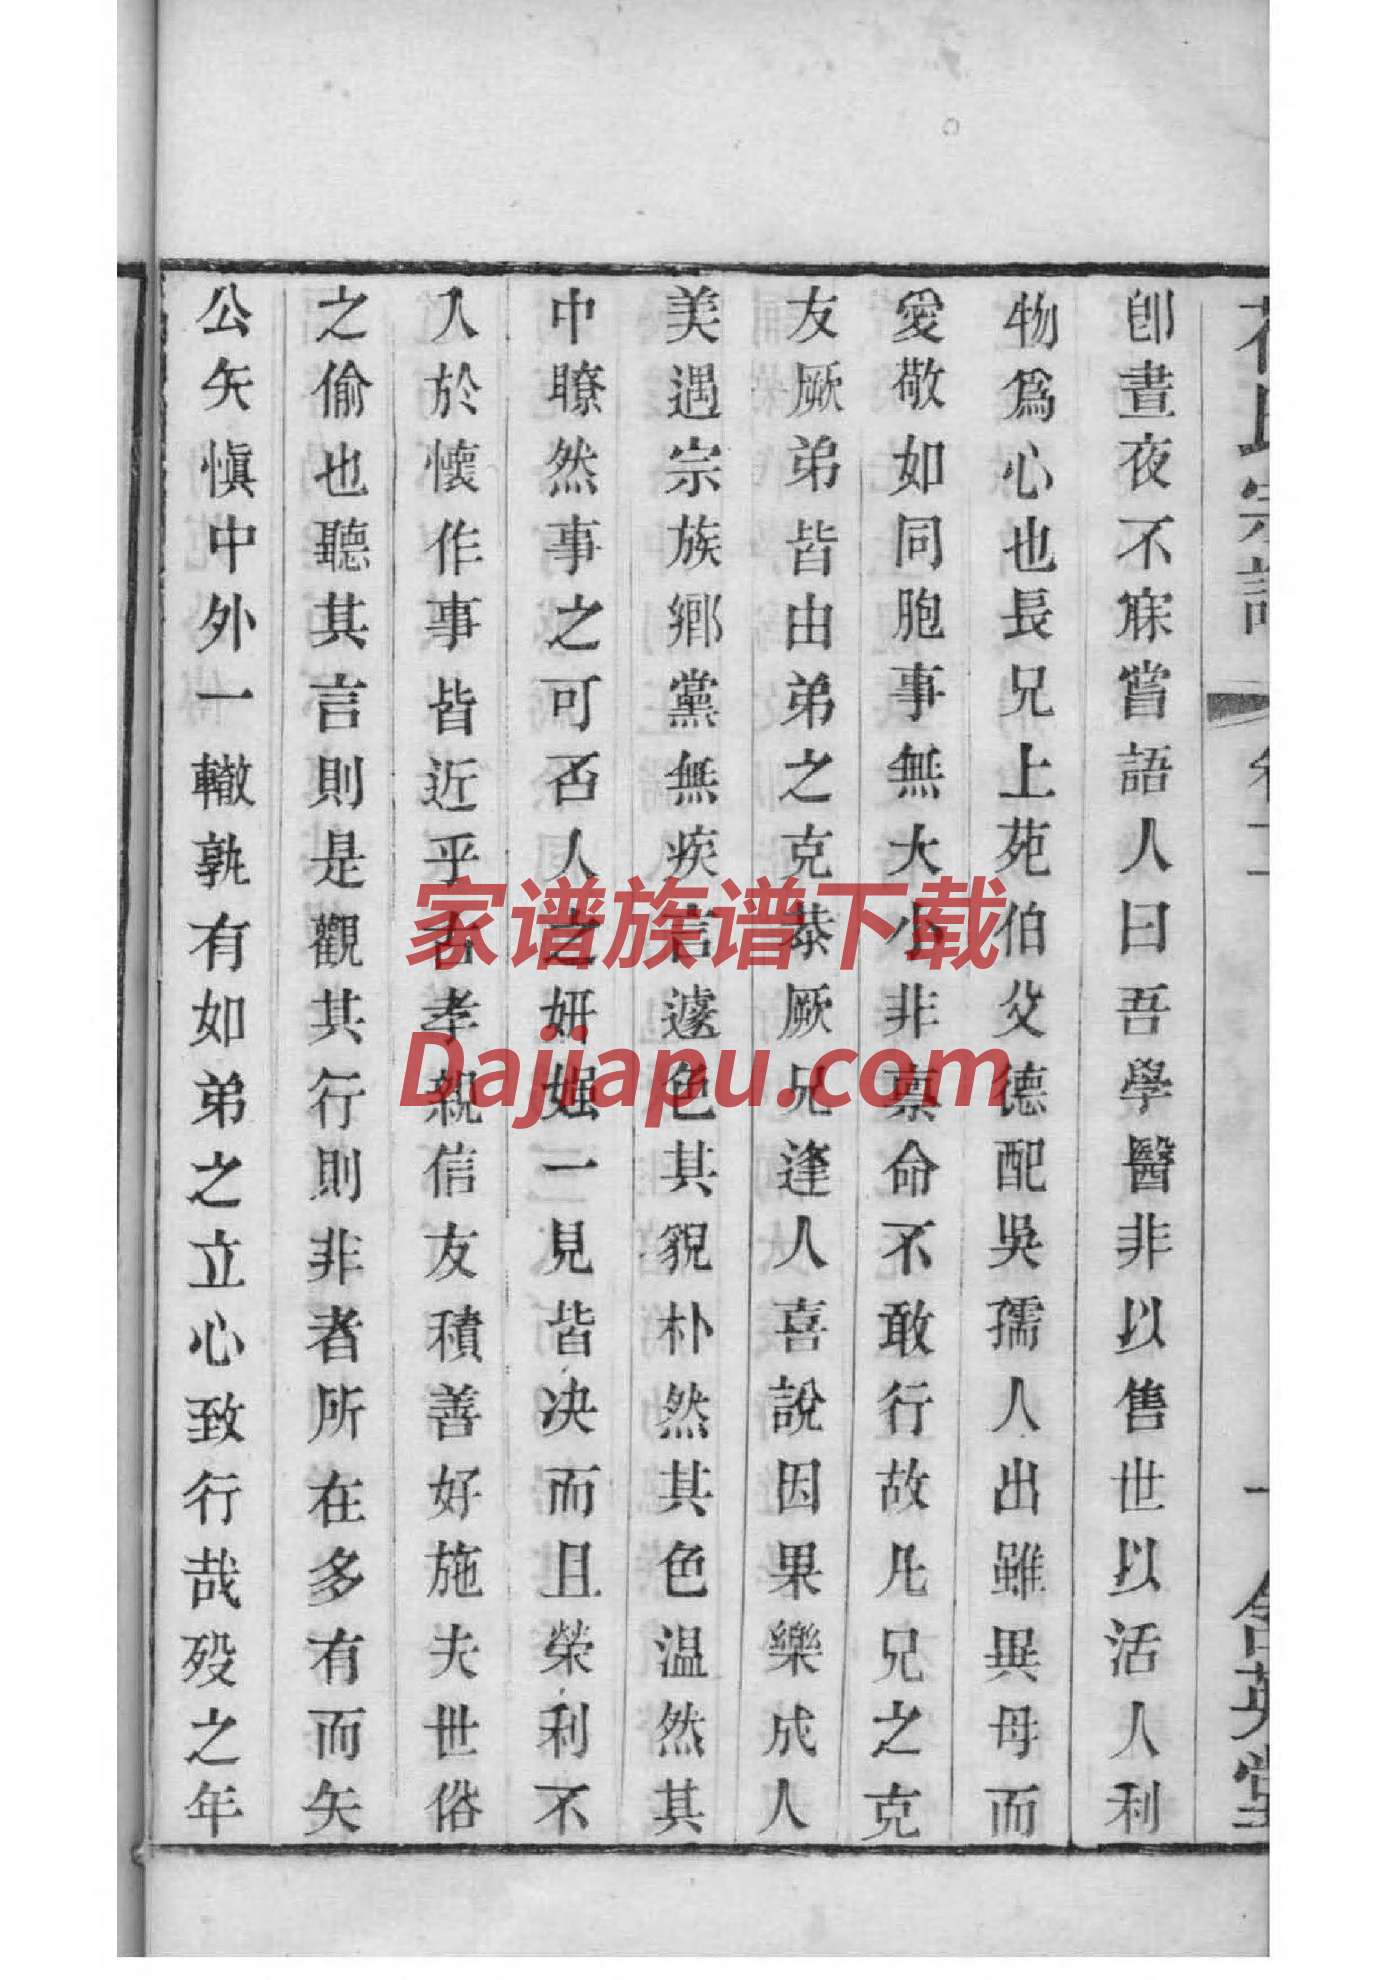 卽晝夜不寐嘗語人曰吾學醫非以售世以活人利
物爲心也長兄上苑伯父德配吳孺人出雖異母而
愛敬如同胞事無大小非禀命不敢行故凡兄之克
友厥弟皆由弟之克恭厥兄逢人喜說因果樂成人
美遇宗族鄉黨無疾言遽色其貌朴然其色温然其
中瞭然事之可否人之妍媸一見皆决而且榮利不
入於懷作事皆近乎古孝親信友積善好施夫世俗
之偷也聽其言則是觀其行則非者所在多有而矢
公矢愼中外一轍孰有如弟之立心致行哉殁之年
家谱族谱下载
Dajiapu.com